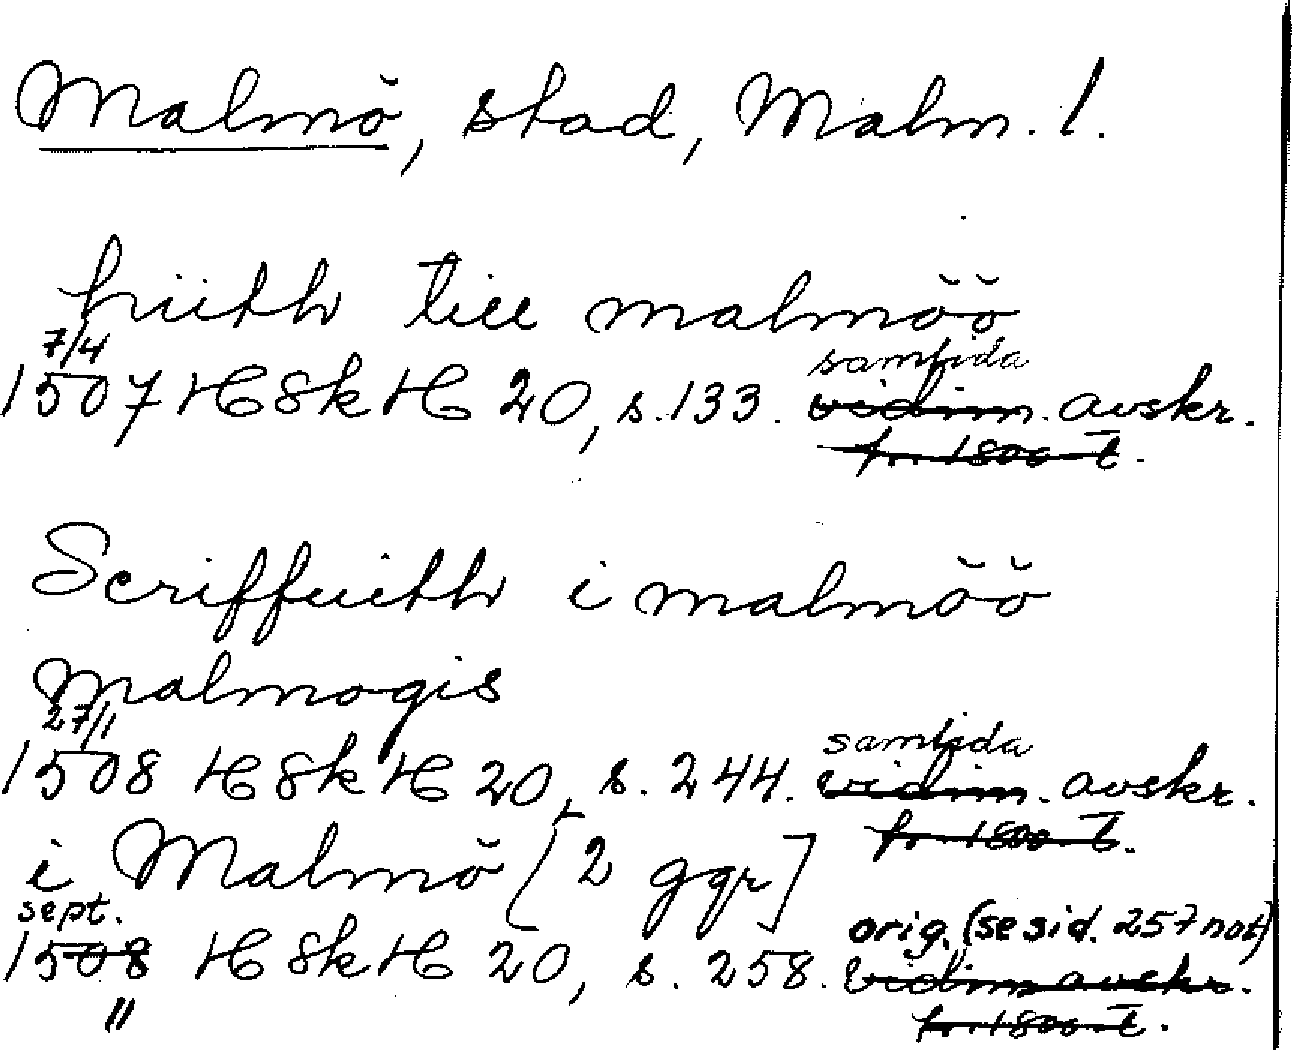 Malmö, stad, Malm. l.
hiith till malmöö
7/4 samtida
1507 HSkH 20, s. 133. vidim. avskr.
fr. 1800-t.
Scriffuith i malmöö
Malmogis
27/1 samtida
1508 HSkH 20, s. 244. vidim. avskr.
fr. 1800-t.
i Malmö [2 ggr]
sept. orig. (se sid. 257 not)
1508 HSkH 20, s. 258. vidim avskr.
" fr. 1800-t.